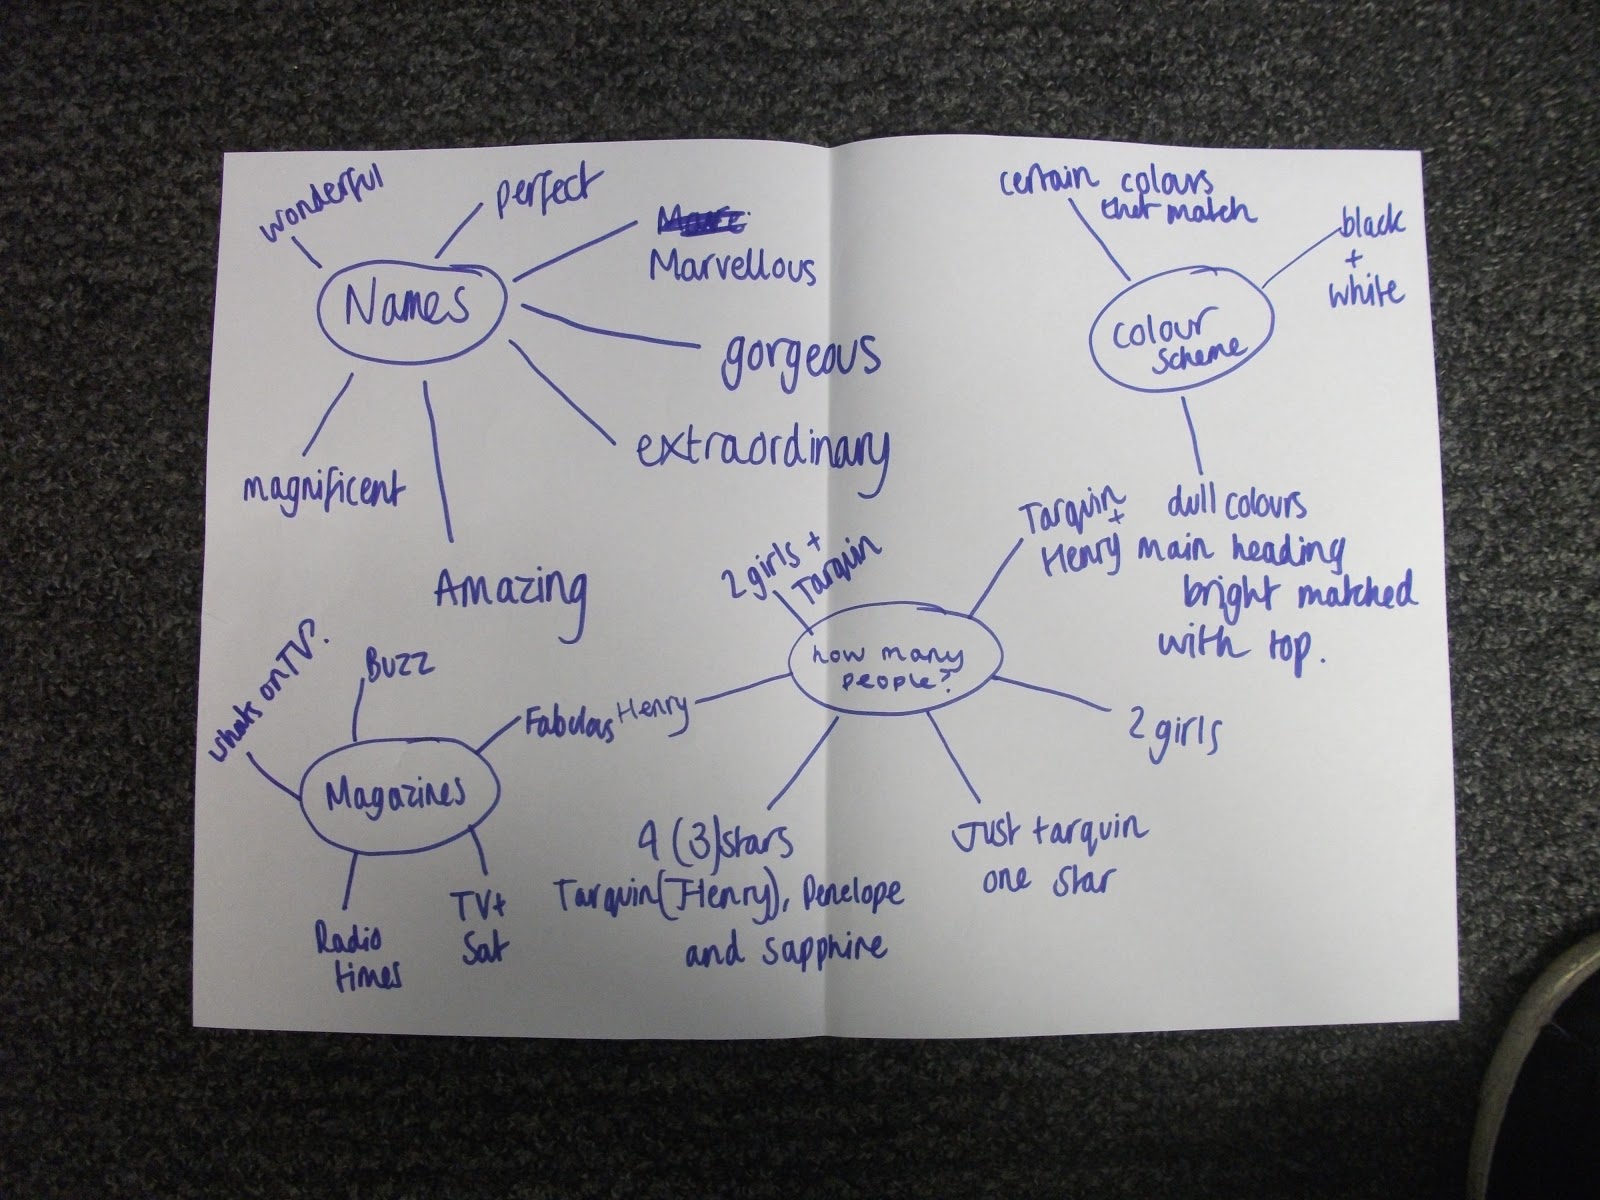 wonderful
perfect
Marvellous
Names
gorgeous
extraordinary
magnificent
Amazing
certain colours
that match
black
+
white
colour
scheme
dull colours
main heading
bright matched
with top.
2 girls +
Tarquin
Tarquin
+
Henry
how many
people?
Henry
2 girls
4 (3) stars
Tarquin (Henry), Penelope
and sapphire
Just tarquin
one star
whats on TV?
Buzz
Fabulous
Magazines
Radio
times
TV+
Sat